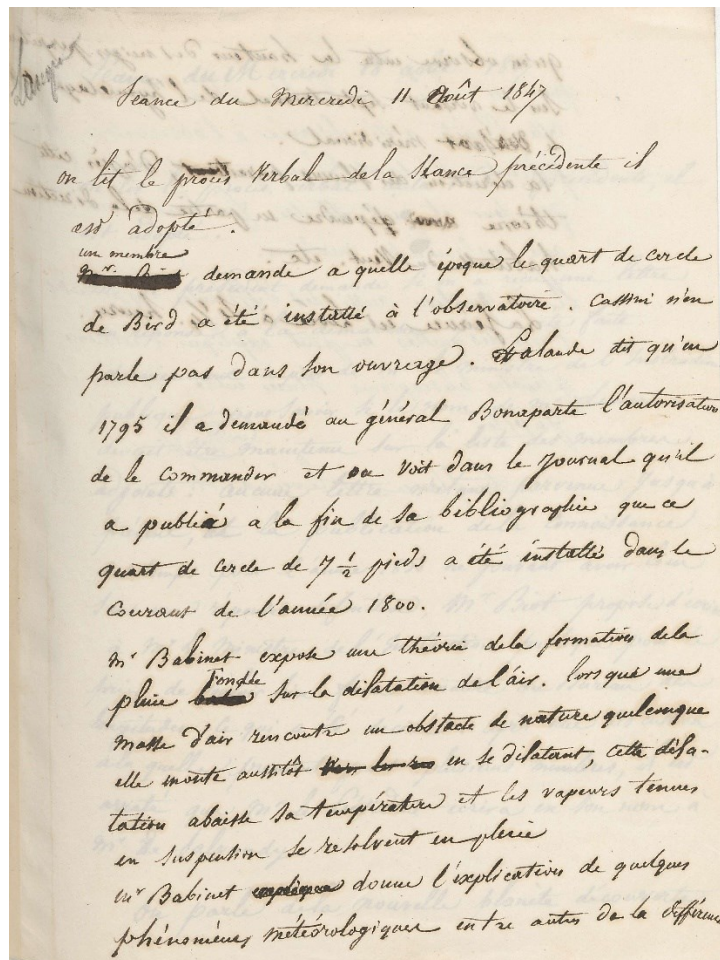 Séance du Mercredi 11 Août 1847
on lit le procès Verbal de la Séance précédente il
est adopté.
un membre
demande a quelle époque le quart de cercle
de Bird a été installé à l'observatoire. Cassini n'en
parle pas dans son ouvrage. Lalande dit qu'en
1795 il a demandé au général Bonaparte l'autorisation
de le commander et on voit dans le Journal qu'il
a publié a la fin de sa bibliographie que ce
quart de cercle de 7 ½ pieds a été installé dans le
Courant de l'année 1800.
Mr Babinet expose une théorie de la formation de la
pluie fondée sur la dilatation de l'air. lorsqu'une
masse d'air rencontre un obstacle de nature quelconque
elle monte aussitôt en se dilatant, cette dila-
tation abaisse sa température et les vapeurs tenues
en suspension se resolvent en pluie
Mr Babinet donne l'explication de quelques
phénomènes météorologiques entre autres de la différence